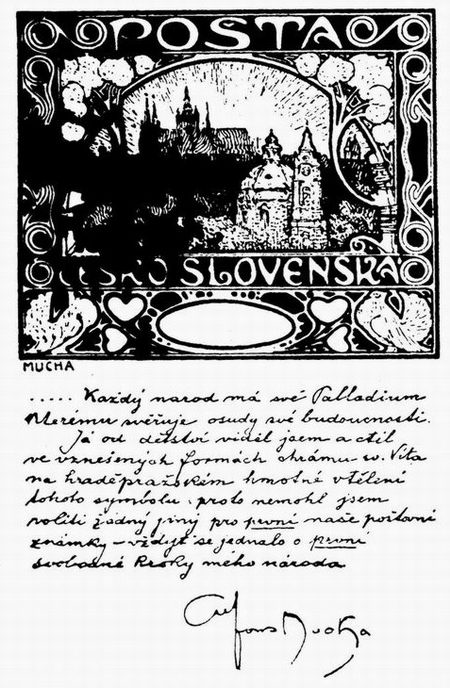 POŠTA
ČESKO SLOVENSKÁ
MUCHA
..... Každý narod má své Palladium
kterému svěřuje osudy své budoucnosti.
Já od dětství viděl jsem a ctil
ve vznešených formách chrámu sv. Víta
na hradě pražském hmotné vtělení
tohoto symbolu, proto nemohl jsem
voliti žádný jiný pro první naše poštovní
známky – vždyť se jednalo o první
svobodné kroky mého národa
Alfons Mucha